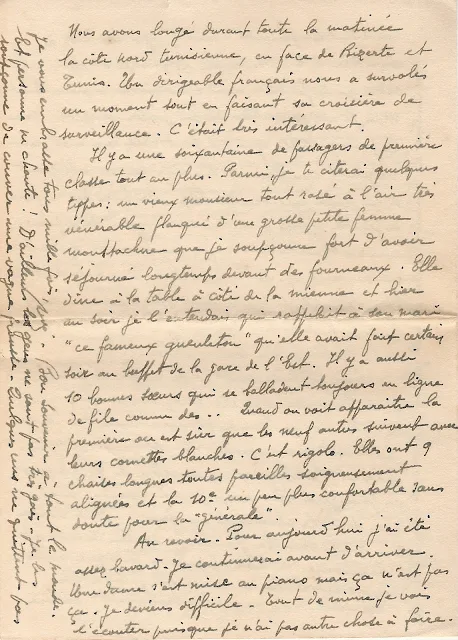 Nous avons longé durant toute la matinée
la côte nord tunisienne, en face de Bizerte et
Tunis. Un dirigeable français nous a survolés
un moment tout en faisant sa croisière de
surveillance. C'était très intéressant.
Il y a une soixantaine de passagers de première
classe tout au plus. Parmi, je te citerai quelques
types: un vieux monsieur tout rasé à l'air très
vénérable flanqué d'une grosse petite femme
moustachue que je soupçonne fort d'avoir
séjourné longtemps devant des fourneaux. Elle
dîne à la table à côté de la mienne et hier
au soir je l'entendais qui rappelait à son mari
"ce fameux gueuleton" qu'elle avait fait certain
soir au buffet de la gare de l'Est. Il y a aussi
10 bonnes sœurs qui se balladent toujours en ligne
de file comme des .. Quand on voit apparaître la
première on est sûr que les neuf autres suivent avec
leurs cornettes blanches. C'est rigolo. Elles ont 9
chaises longues toutes pareilles soigneusement
alignées et la 10e un peu plus confortable sans
doute pour la "générale".
Au revoir. Pour aujourd'hui j'ai été
assez bavard. Je continuerai avant d'arriver.
Une dame s'est mise au piano mais ça n'est pas
ça. Je deviens difficile. Tout de même je vais
l'écouter puisque je n'ai pas autre chose à faire.
Je vous embrasse tous mille fois. Bon souvenir à tout le monde.
Et personne ne chante! D'ailleurs les gens ne sont pas très gais. Je les
soupçonne de couver une vague . Quelques uns ne quittent pas